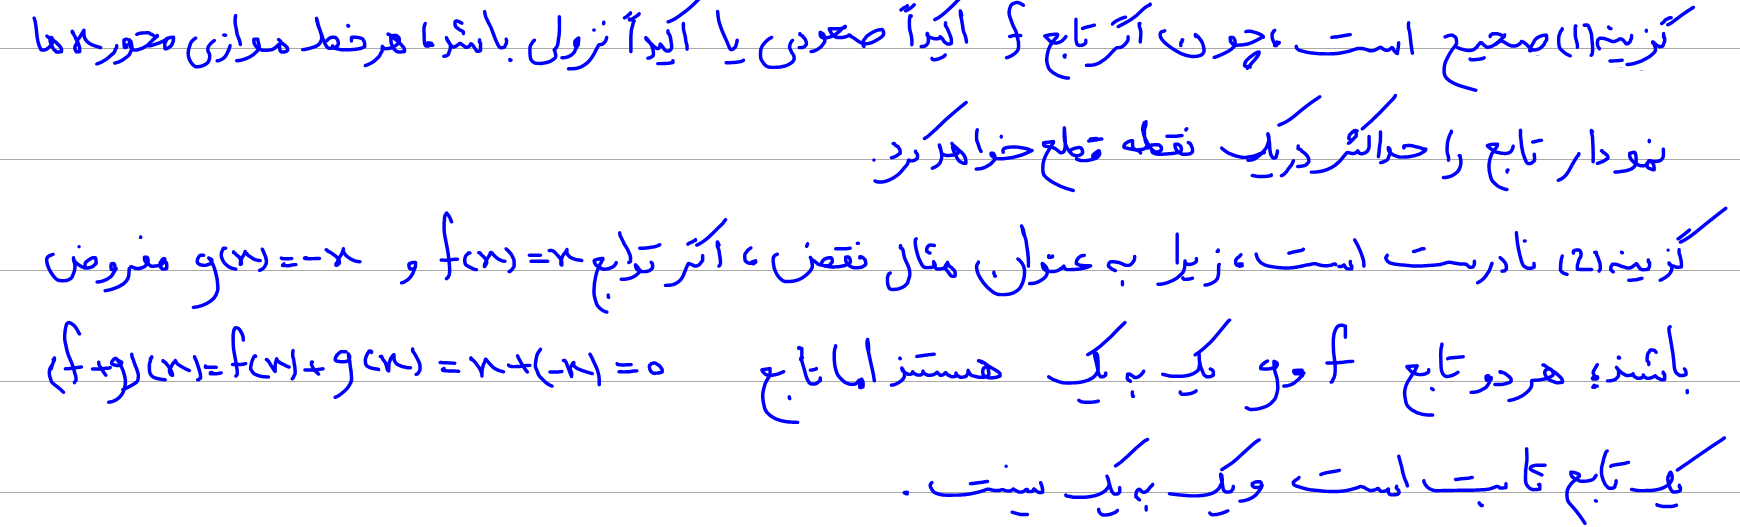 گزینه (1) صحیح است، چون اگر تابع f اکیداً صعودی یا اکیداً نزولی باشد، هر خط موازی محور xها
نمودار تابع را حداکثر در یک نقطه قطع خواهد کرد.
گزینه (2) نادرست است، زیرا به عنوان مثال نقض، اگر توابع f(x)=x و g(x)=-x مفروض
باشند؛ هر دو تابع f و g یک به یک هستند اما تابع (f+g)(x)=f(x)+g(x)=x+(-x)=0
یک تابع ثابت است و یک به یک نیست.